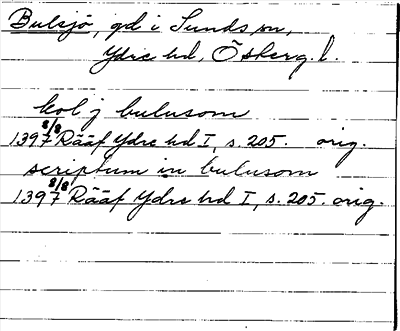 Bulsjö, gd i Sunds sn,
Ydre hd, Österg. l.
kol j bulusom
1397 8/8 Rääf Ydre hd I, s. 205. orig.
scriptum in bulusom
1397 8/8 Rääf Ydre hd I, s. 205. orig.